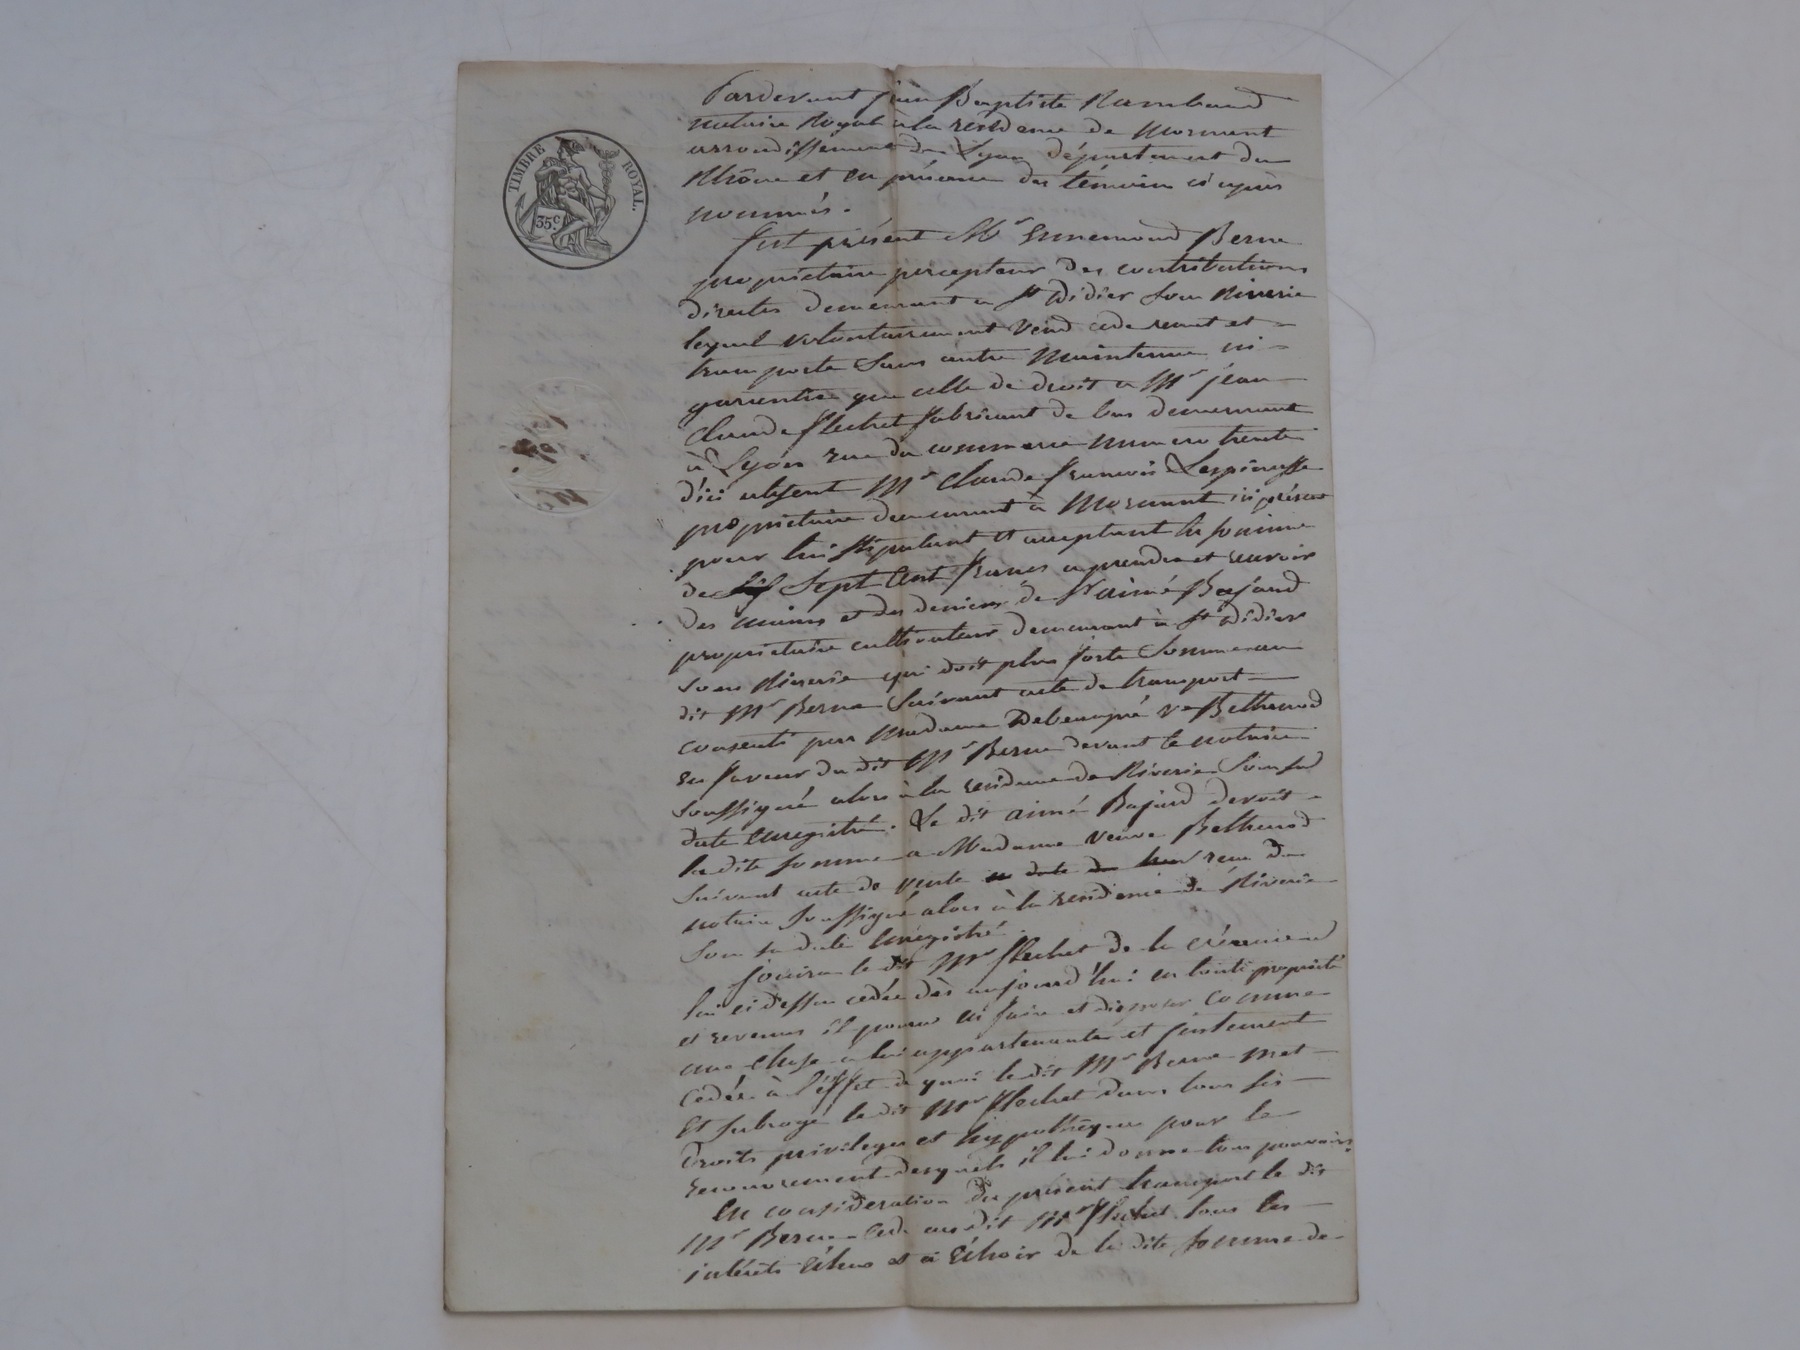 TIMBRE ROYAL.
35c.
Pardevant jean Baptiste Rambaud
notaire Royal a la résidence de Mornant
arrondissement de Lyon département du
Rhône et en présence des témoins ci après
nommés.
fut présent Mr Ennemond Berne
propriétaire percepteur des contributions
directes demeurant a St Didier sous Riverie
lequel volontairement vend cede remet et
transporte sans autre maintenue ni
garentie que celle de droit a Mr jean
Claude flechet fabricant de bas demeurant
à Lyon rue du commerce numero trente
d'ici absent Mr Claude francois Lespinasse
propriétaire demeurant à Mornant ici présent
pour lui stipulant et acceptant la somme
de Sept Cent francs a prendre et recevoir
des mains et des deniers de Sr aimé Bajard
propriétaire cultivateur demeurant à St Didier
sous Riverie qui doit plus forte Somme au
dit Mr Berne Suivant acte de transport
consenti par Madame ve Bethenod
en faveur du dit Mr Berne devant le notaire
soussigné alors à la residence de Riverie Sous sa
date enregistré. Le dit aimé Bajard devoit
la dite somme a Madame veuve Bethenod
Suivant acte de vente en date du recu du
notaire soussigné alors à la residence de Riverie
sous sa date enregistré.
jouira le dit Mr flechet de la créance
lui ci dessus cedée dès aujourd'hui en toute propriété
et revenus il pourra en faire et disposer comme
une chose a lui appartenante et justement
cedée à l'effet de quoi le dit Mr Berne met
et subroge le dit Mr flechet dans tous ses
droits privileges et hypothéques pour le
recouvrement desquels il lui donne tous pouvoirs.
En considération du présent transport le dit
Mr Berne cede au dit Mr flechet tous les
intérêts échus et à échoir de la dite somme de